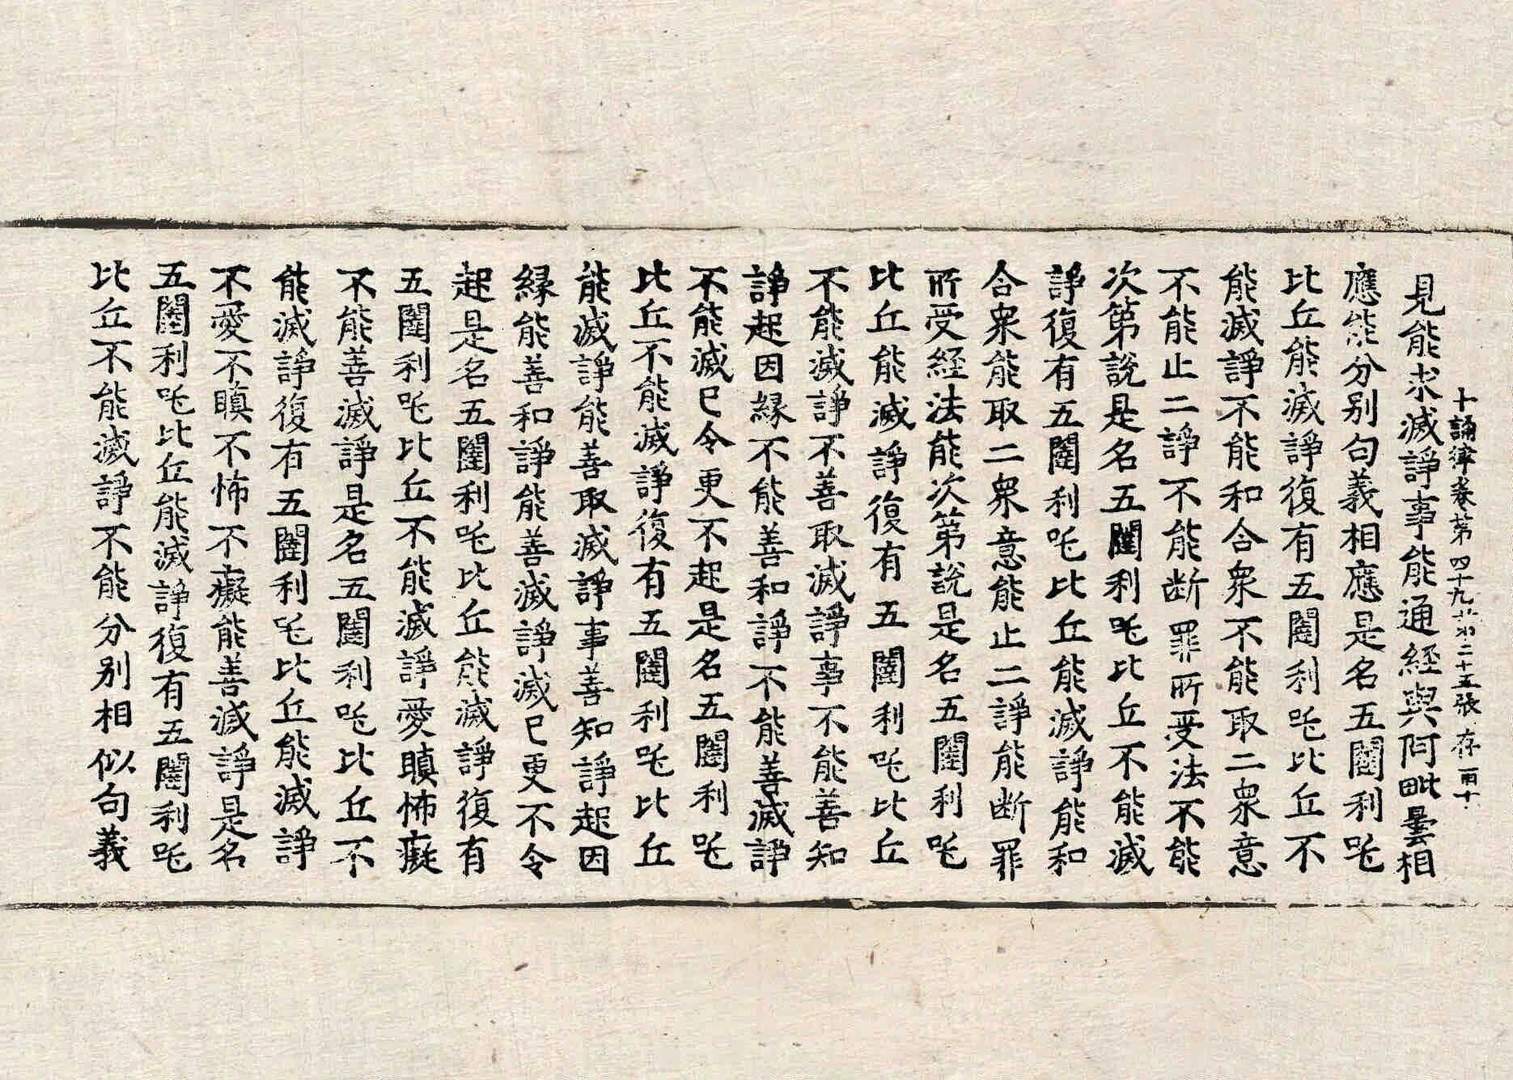 十誦律卷第四十九 第二十五張 存
見能求滅諍事能通經與阿毗曇相
應能分別句義相應是名五闥利吒
比丘能滅諍復有五闥利吒比丘不
能滅諍不能和合衆不能取二衆意
不能止二諍不能断罪所受法不能
次第說是名五闥利吒比丘不能滅
諍復有五闥利吒比丘能滅諍能和
合衆能取二衆意能止二諍能断罪
所受經法能次第說是名五闥利吒
比丘能滅諍復有五闥利吒比丘
不能滅諍不善取滅諍事不能善知
諍起因緣不能善和諍不能善滅諍
不能滅已令更不起是名五闥利吒
比丘不能滅諍復有五闥利吒比丘
能滅諍能善取滅諍事善知諍起因
緣能善和諍能善滅諍滅已更不令
起是名五闥利吒比丘能滅諍復有
五闥利吒比丘不能滅諍愛瞋怖癡
不能善滅諍是名五闥利吒比丘不
能滅諍復有五闥利吒比丘能滅諍
不愛不瞋不怖不癡能善滅諍是名
五闥利吒比丘能滅諍復有五闥利吒
比丘不能滅諍不能分別相似句義